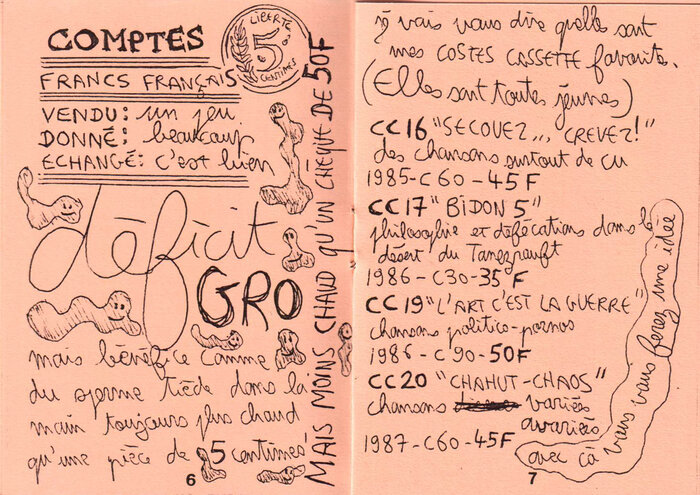 COMPTES
LIBERTE
5
CENTIMES
FRANCS FRANÇAIS
VENDU: un jeu
DONNÉ: beaucoup
ECHANGÉ: c'est bien
déficit
GRO
mais bénéfice comme
du sperme tiède dans la
main toujours plus chaud
qu'une pièce de 5 centimes
MAIS MOINS CHAUD QU'UN CHEQUE DE 50F
6
je vais vous dire quelles sont
mes COSTES CASSETTE favorite.
(Elles sont toutes jeunes)
CC16 "SECOUEZ... CREVEZ!"
des chansons surtout de cu
1985-C60-45F
CC17 "BIDON 5"
philosophie et défécations dans le
désert du Tanezrouft
1986-C30-35F
CC19 "L'ART C'EST LA GUERRE"
chansons politico-pornos
1986-C90-50F
CC20 "CHAHUT-CHAOS"
chansons variées
avariées
1987-C60-45F
avec ça vous vous ferez une idée
7